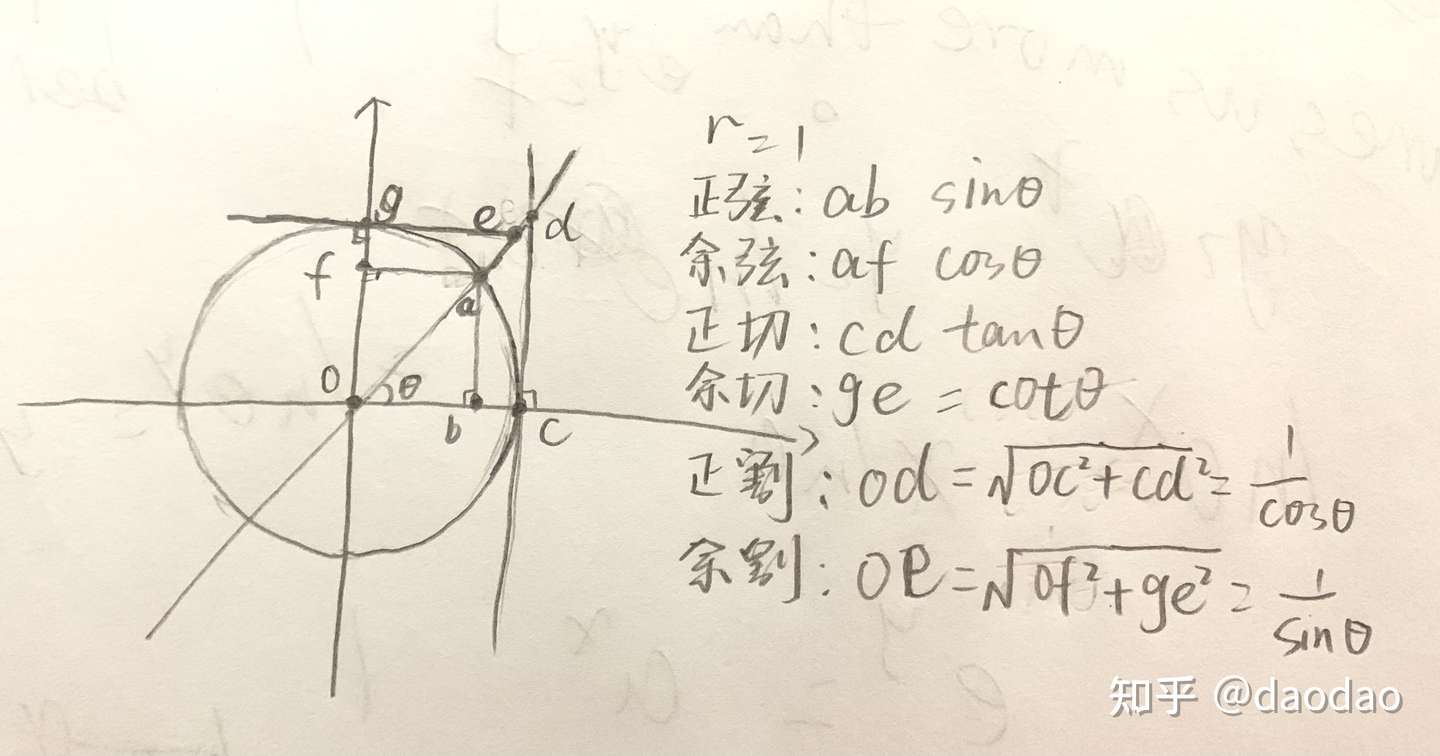 g
e
d
f
a
o
θ
b
c
r=1
正弦：ab sinθ
余弦：af cosθ
正切：cd tanθ
余切：ge = cotθ
正割：od = √(oc²+cd²) = 1/cosθ
余割：oe = √(of²+ge²) = 1/sinθ
知乎 @daodao